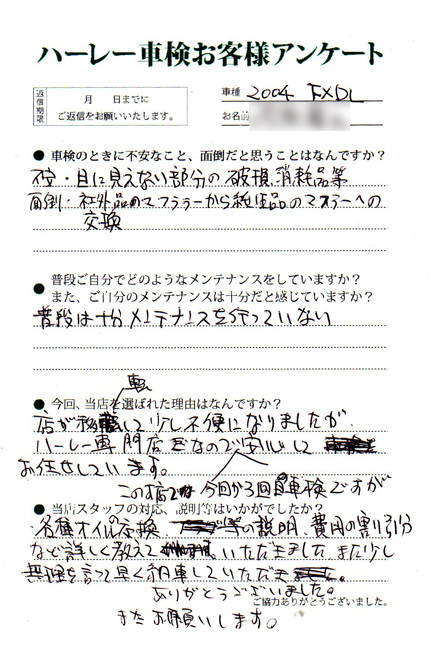 ハーレー車検お客様アンケート
返信期限
月　日までに
ご返信をお願いいたします。
車種 2004 FXDL
お名前
● 車検のときに不安なこと、面倒だと思うことはなんですか？
不安・目に見えない部分の破損消耗品等
面倒・社外品のマフラーから純正品のマフラーへの
交換
● 普段ご自分でどのようなメンテナンスをしていますか？
また、ご自分のメンテナンスは十分だと感じていますか？
普段は十分メンテナンスを行っていない
● 今回、当店を選ばれた理由はなんですか？
店が移転して少し不便になりましたが、
ハーレー専門店なので安心して
お任せしています。
この店では今回が3回目車検ですが
● 当店スタッフの対応、説明等はいかがでしたか？
各種オイル交換 等の説明、費用の割り引分
など詳しく教えて いただきました また少し
無理を言って早く納車していただき
ありがとうございました。
ご協力ありがとうございました。
また お願いします。